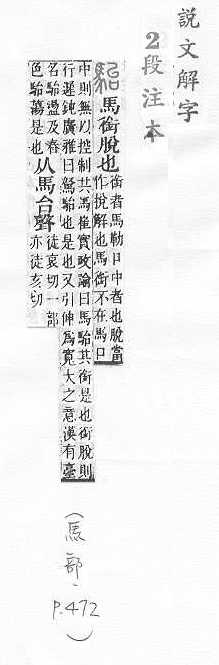 說文解字
2段注本
駘馬銜脫也
銜者馬勒口中者也脫當
作挩解也馬銜不在馬口
中則無以控制其馬崔寔政論曰馬駘其銜是也銜脫則
行遲鈍廣雅曰駑駘也是也又引伸爲寬大之意漢有臺
名駘盪及春
色駘蕩是也
从馬台聲
徒哀切一部
亦徒亥切
(馬部，P.472)